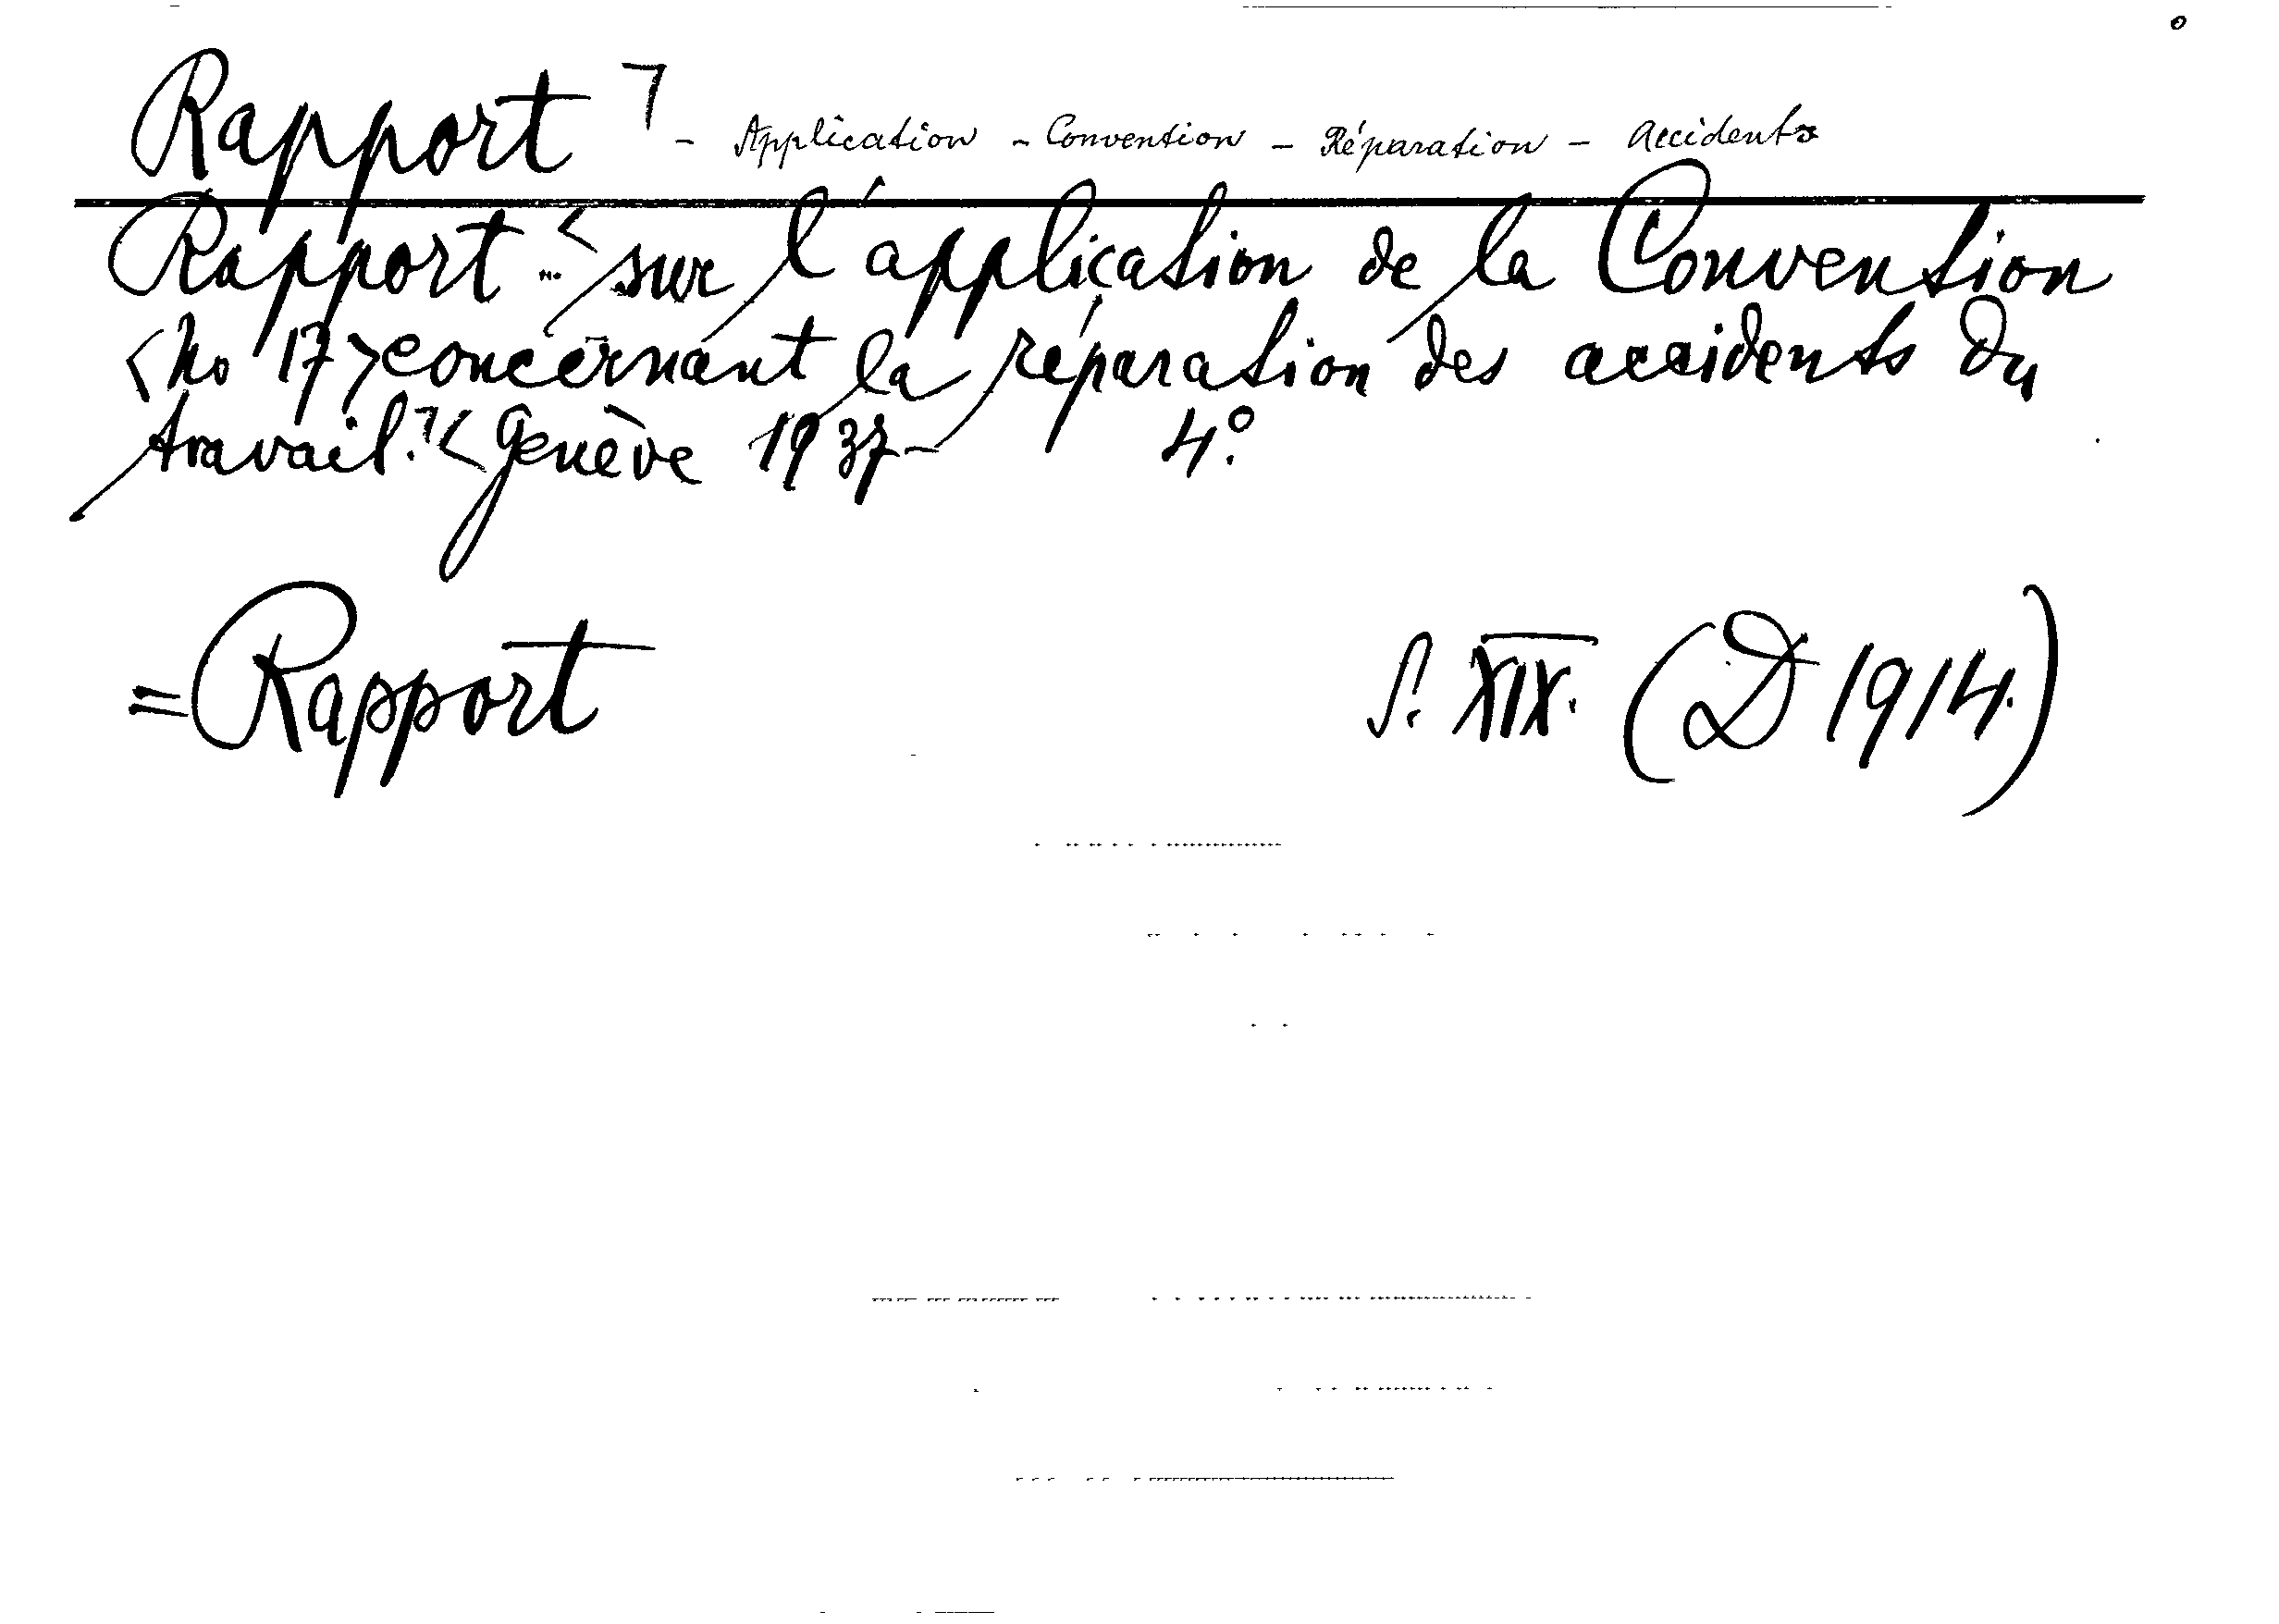 Rapport ┐ - Application - Convention - Réparation - Accidents
Rapport ... < sur l'application de la Convention
<No 17> concernant la réparation des accidents du
travail. ┐< Genève 1937- 4°.
= Rapport S. XIX. (D 1914.)